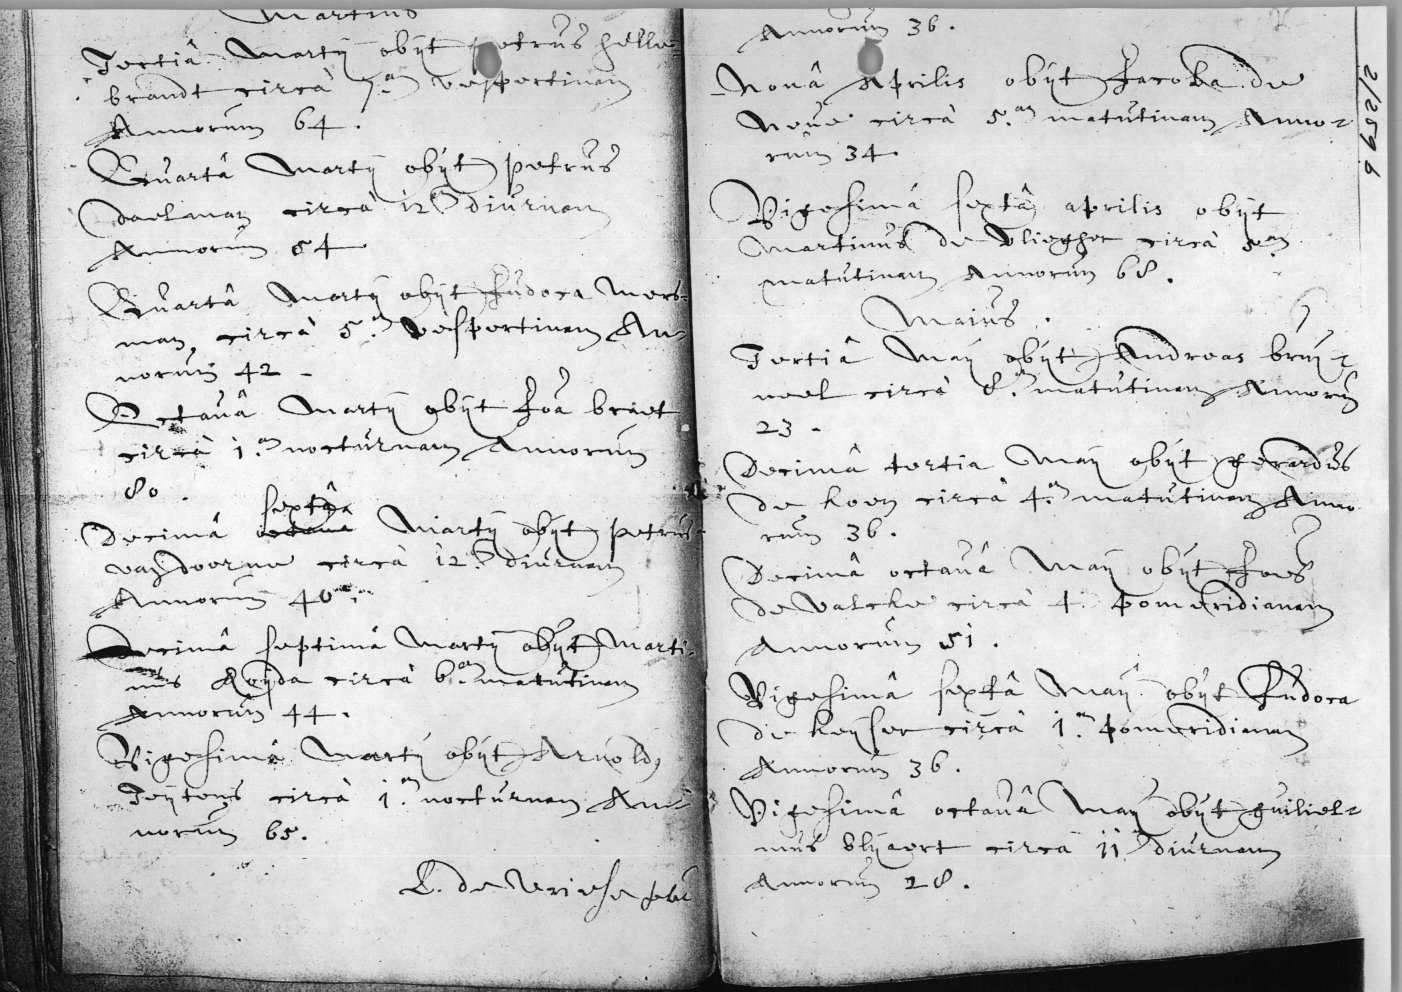 Martius
Tertiâ Martij obijt petrus helle-
brandt circà 7.am vespertinam
Annorum 64.
Quartâ Martij obijt petrus
daelman circà 12am diurnam
Annorum 54
Quartâ Martij obijt Judoca Mers-
man circà 5.am vespertinam An-
norum 42 -
Octauâ Martij obijt Joã braet
circà 1.am nocturnam Annorum
80.
sextâ
Decimâ octaua Martij obijt petrus
van doorne circà 12.am diurnam
Annorum 40
Decimâ septimâ Martij obijt Marti-
nus circà 6.am matutinam
Annorum 44.
Vigesimâ Martij obijt Arnold9
Teijtens circà 1.am nocturnam An-
norum 65.
L. de Vriese pbr
Annorum 36.
Nonâ Aprilis obijt Jacoba de
Neue circà 5.am matutinam Anno-
rum 34.
Vigesimâ sextâ aprilis obijt
Martinus de Vliegher circà 5am
matutinam Annorum 68.
Maius.
Tertiâ Maij obijt Andreas bruij-
neel circà 8.am matutinam Annorum
23.
Decimâ tertia Maij obijt gerardus
de koen circà 4.am matutinam Anno-
rum 36.
Decimâ octauâ Maij obijt Joes
de Valcke circà 4. pomeridianam
Annorum 51.
Vigesimâ sextâ Maij obijt Judoca
de keijser circà 1.am pomeridianam
Annorum 36.
Vigesimâ octauâ Maij obijt guiliel-
mus blijaert circà 11am diurnam
Annorum 28.
2/259 b